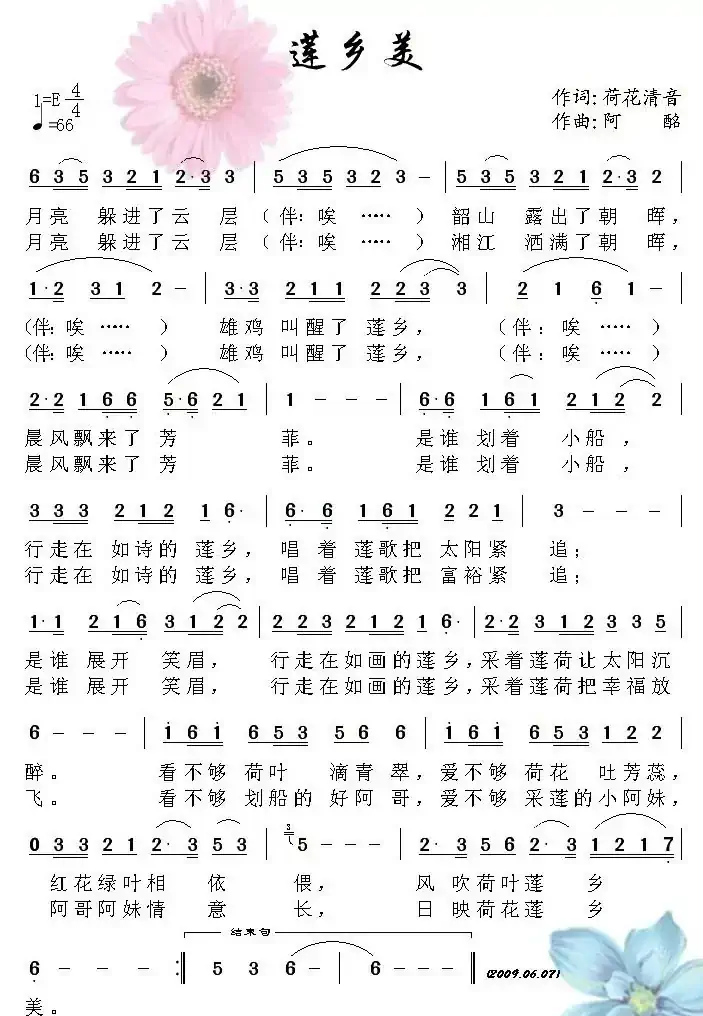 莲乡美
1=E 4/4
♩=66
作词: 荷花清音
作曲: 阿 酩
6 3 5 3 2 1 2·3 3 | 5 3 5 3 2 3 - | 5 3 5 3 2 1 2·3 2 |
月亮 躲进了云 层 (伴: 唉 ····· ) 韶山 露出了朝 晖,
月亮 躲进了云 层 (伴: 唉 ····· ) 湘江 洒满了朝 晖,
1·2 3 1 2 - | 3·3 2 1 1 2 2 3 3 | 2 1 6 1 - |
(伴: 唉 ····· ) 雄鸡 叫醒了 莲乡, (伴: 唉 ····· )
(伴: 唉 ····· ) 雄鸡 叫醒了 莲乡, (伴: 唉 ····· )
2·2 1 6 6 5·6 2 1 | 1 - - - | 6·6 1 6 1 2 1 2 2 |
晨风飘来了 芳 菲。 是谁 划着 小船 ,
晨风飘来了 芳 菲。 是谁 划着 小船 ,
3 3 3 2 1 2 1 6· | 6·6 1 6 1 2 2 1 | 3 - - - |
行走在 如诗的 莲乡, 唱 着 莲歌把 太阳紧 追;
行走在 如诗的 莲乡, 唱 着 莲歌把 富裕紧 追;
1·1 2 1 6 3 1 2 2 | 2 2 3 2 1 2 1 6· | 2·2 3 1 2 3 3 5 |
是谁 展开 笑眉, 行走在如画的莲乡,采着莲荷让太阳沉
是谁 展开 笑眉, 行走在如画的莲乡,采着莲荷把幸福放
6 - - - | 1 6 1 6 5 3 5 6 6 | 1 6 1 6 5 3 1 2 2 |
醉。 看不够 荷叶 滴青 翠, 爱不够 荷花 吐芳蕊,
飞。 看不够 划船的 好阿 哥, 爱不够 采莲的小阿妹,
0 3 3 2 1 2·3 5 3 | 3 5 - - - | 2·3 5 6 2·3 1 2 1 7 |
红花绿叶相 依 偎, 风 吹荷叶莲 乡
阿哥阿妹情 意 长, 日 映荷花莲 乡
结束句
6 - - - :| 5 3 6 - | 6 - - - | (2009.06.07)
美。